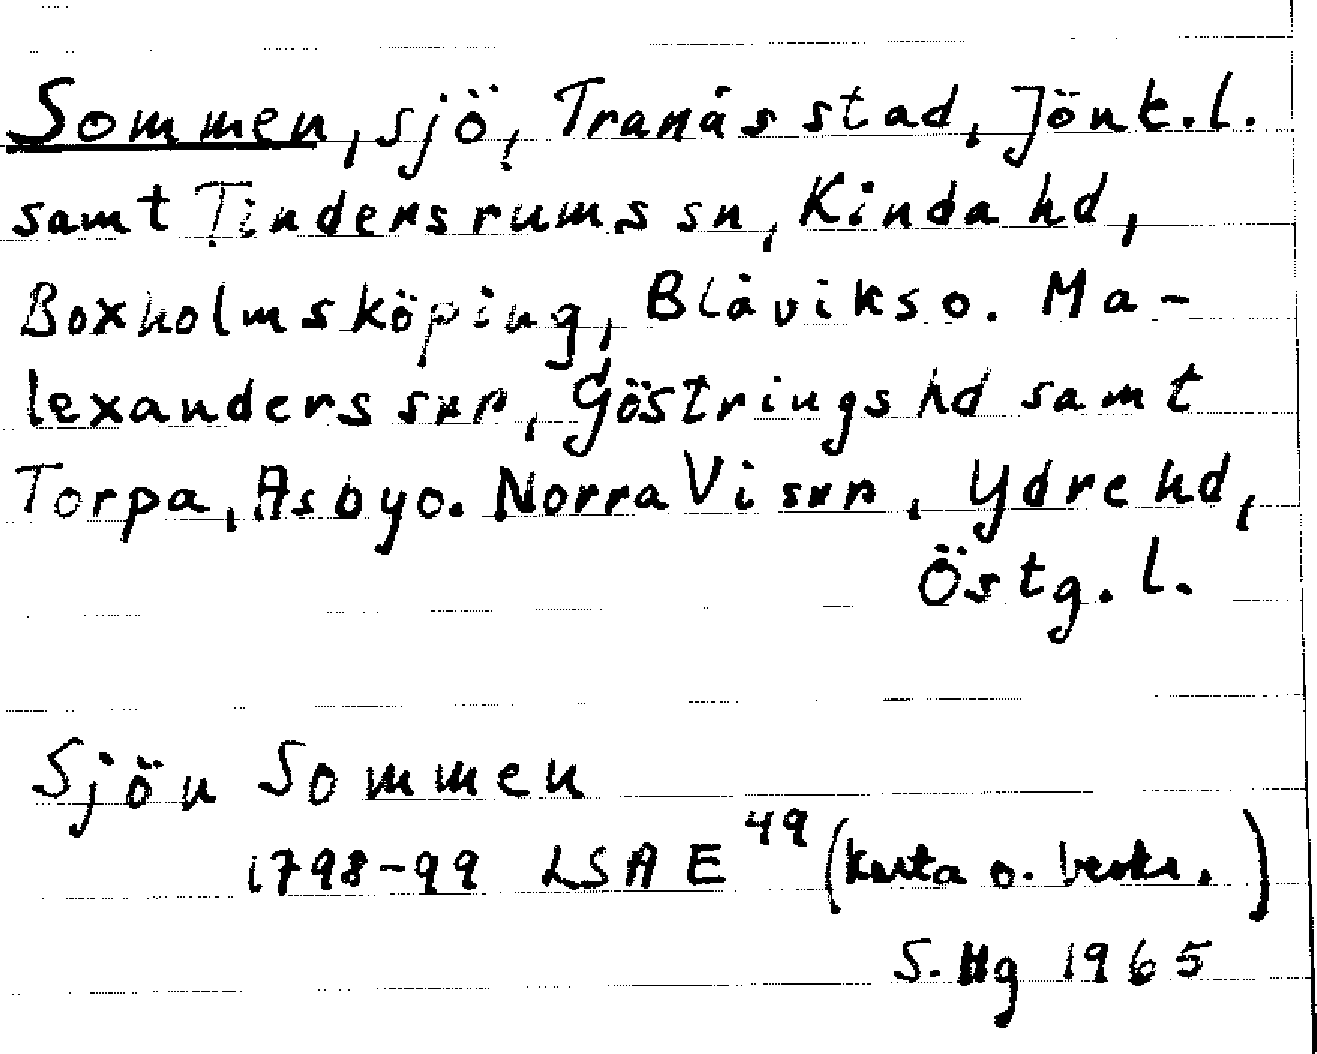 Sommen, sjö, Tranås stad, Jönk.l.
samt Tindensrums sn, Kinda hd,
Boxholmsköping, Blåviks o. Ma-
lexanders snr, Göstrings hd samt
Torpa, Asby o. Norra Vi snr, Ydre hd,
Östg. l.
Sjön Sommen
1798-99 LSA E 49 (karta o. beskr. )
S. Hg 1965